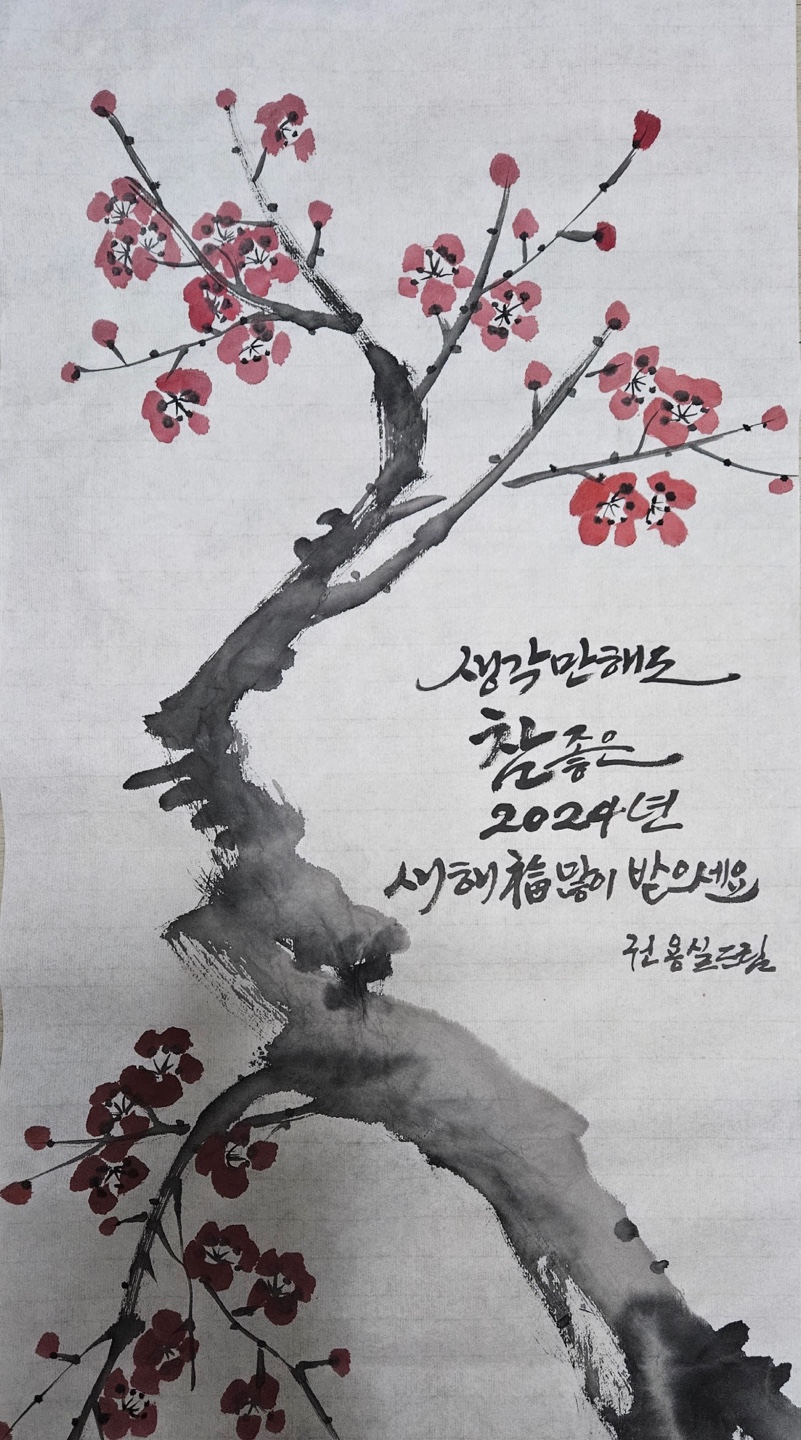 생각만해도
참좋은
2024년
새해 福 많이 받으세요
권용실드림